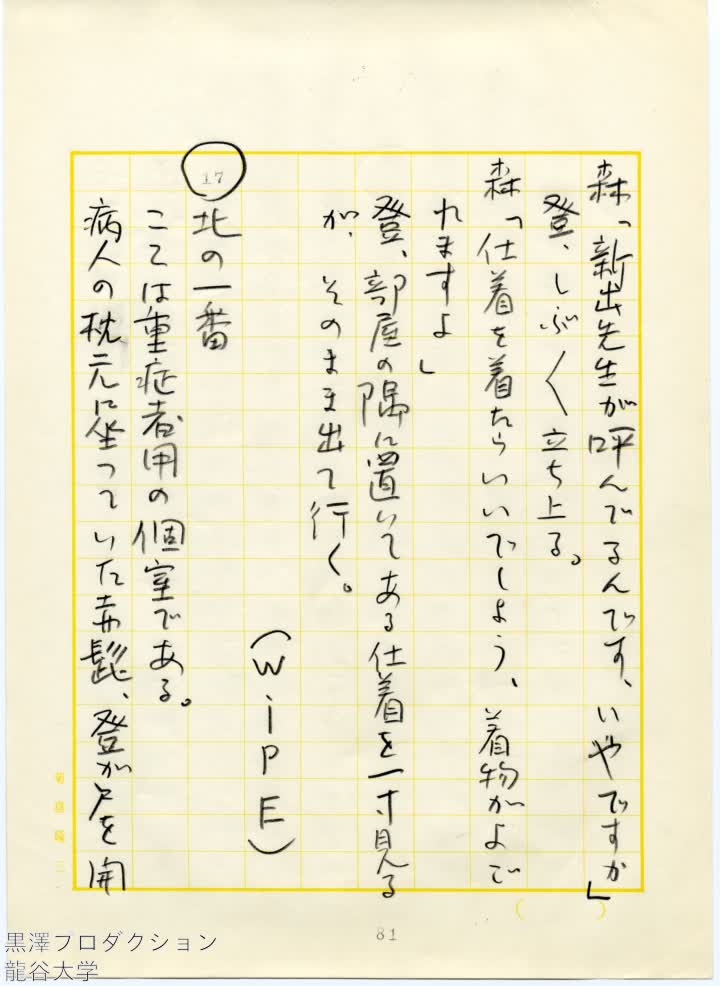 森「新出先生が呼んでるんです、いやですか」
登、しぶ〱立ち上る。
森「仕着を着たらいいでしょう、着物がよご
れますよ」
登、部屋の隅に置いてある仕着を一寸見る
が、そのまま出て行く。
(WiPE)
17
北の一番
こゝは重症者用の個室である。
病人の枕元に坐っていた赤髭、登が戸を開
81
黒澤プロダクション
龍谷大学